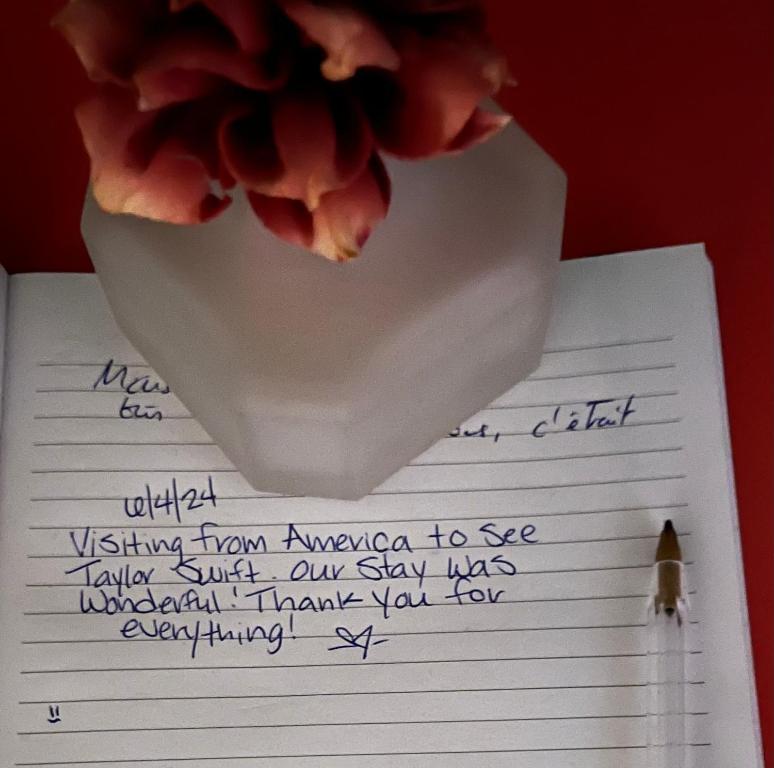 c'était
6/4/24
Visiting from America to see
Taylor Swift. Our Stay was
Wonderful! Thank you for
everything!